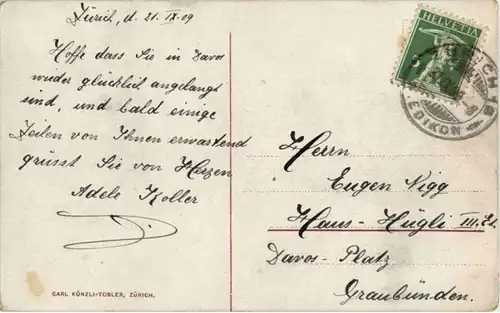 Zürich, d. 21. IX. 09
Hoffe dass Sie in Davos
wieder glücklich angelangt
sind, und bald einige
Zeilen von Ihnen erwartend
grüsst Sie von Herzen
Adele Koller
HELVETIA
EDIKON
Herrn
Eugen Nigg
Haus-Hügli III. Et.
Davos-Platz
Graubünden.
CARL KÜNZLI-TOBLER, ZÜRICH.